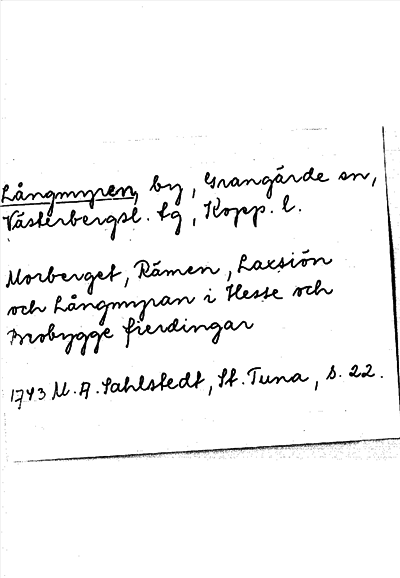 Långmyren, by, Grangärde sn,
Västerbergsl. fg, Kopp. l.
Morberget, Rämen, Laxsiön
och Långmyran i Hesse och
Brobygge fierdingar
1743 M. A. Sahlstedt, St. Tuna, s. 22.